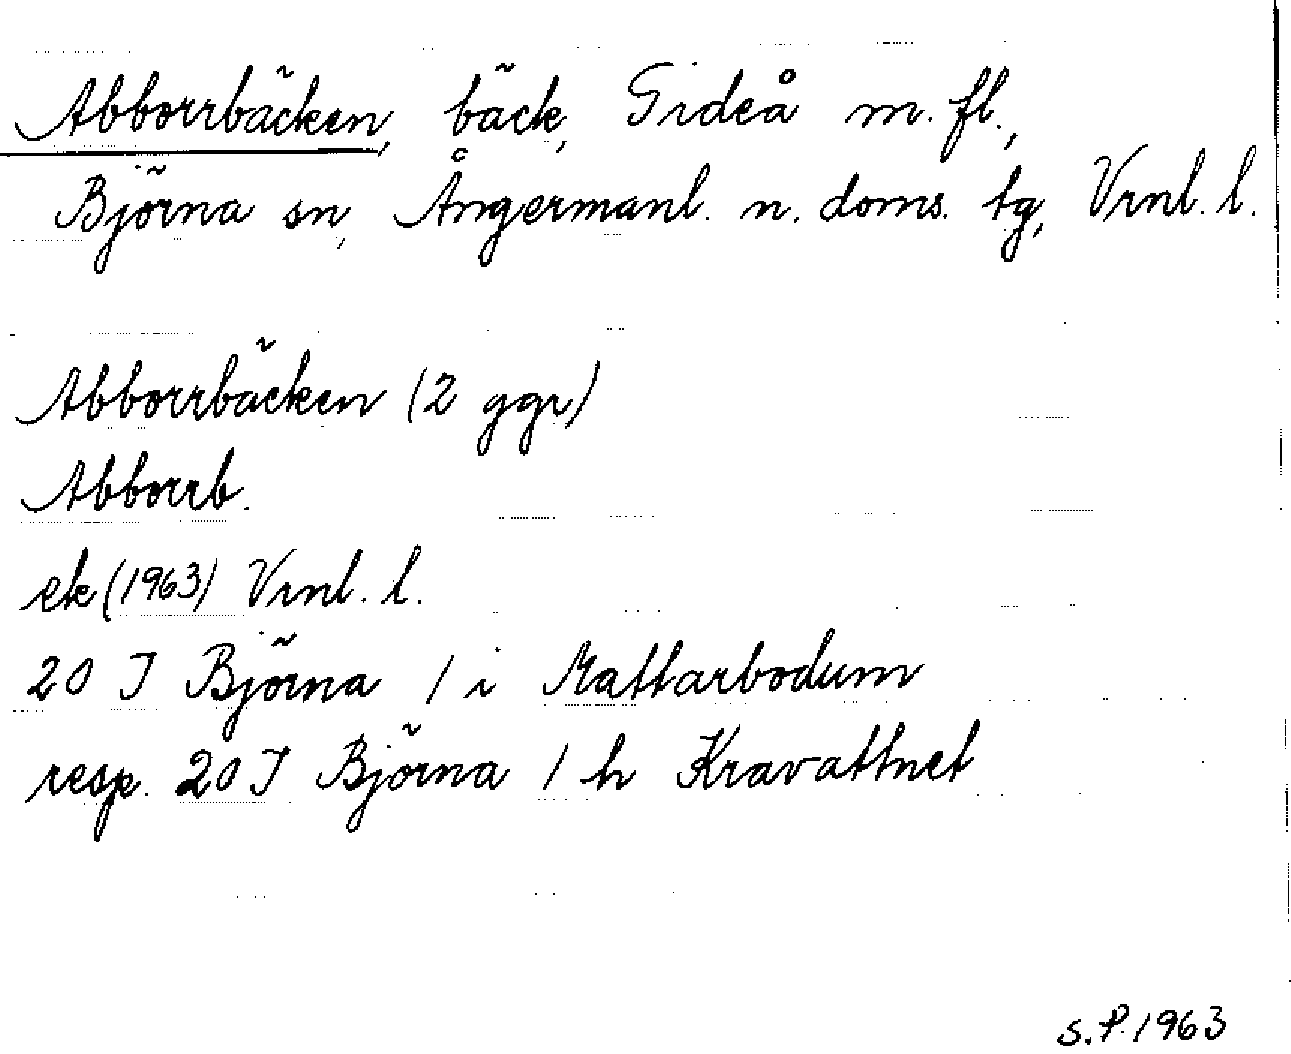 Abborrbäcken, bäck, Gideå m. fl.,
Björna sn, Ångermanl. n. doms. tg, Vrnl. l.
Abborrbäcken (2 ggr)
Abborrb.
ek (1963) Vrnl. l.
20 J Björna / i Mattarbodum
resp. 20 J Björna / h Kravattnet
S.P. 1963